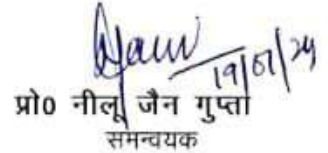 19/07/24
प्रो0 नीलू जैन गुप्ता
समन्वयक